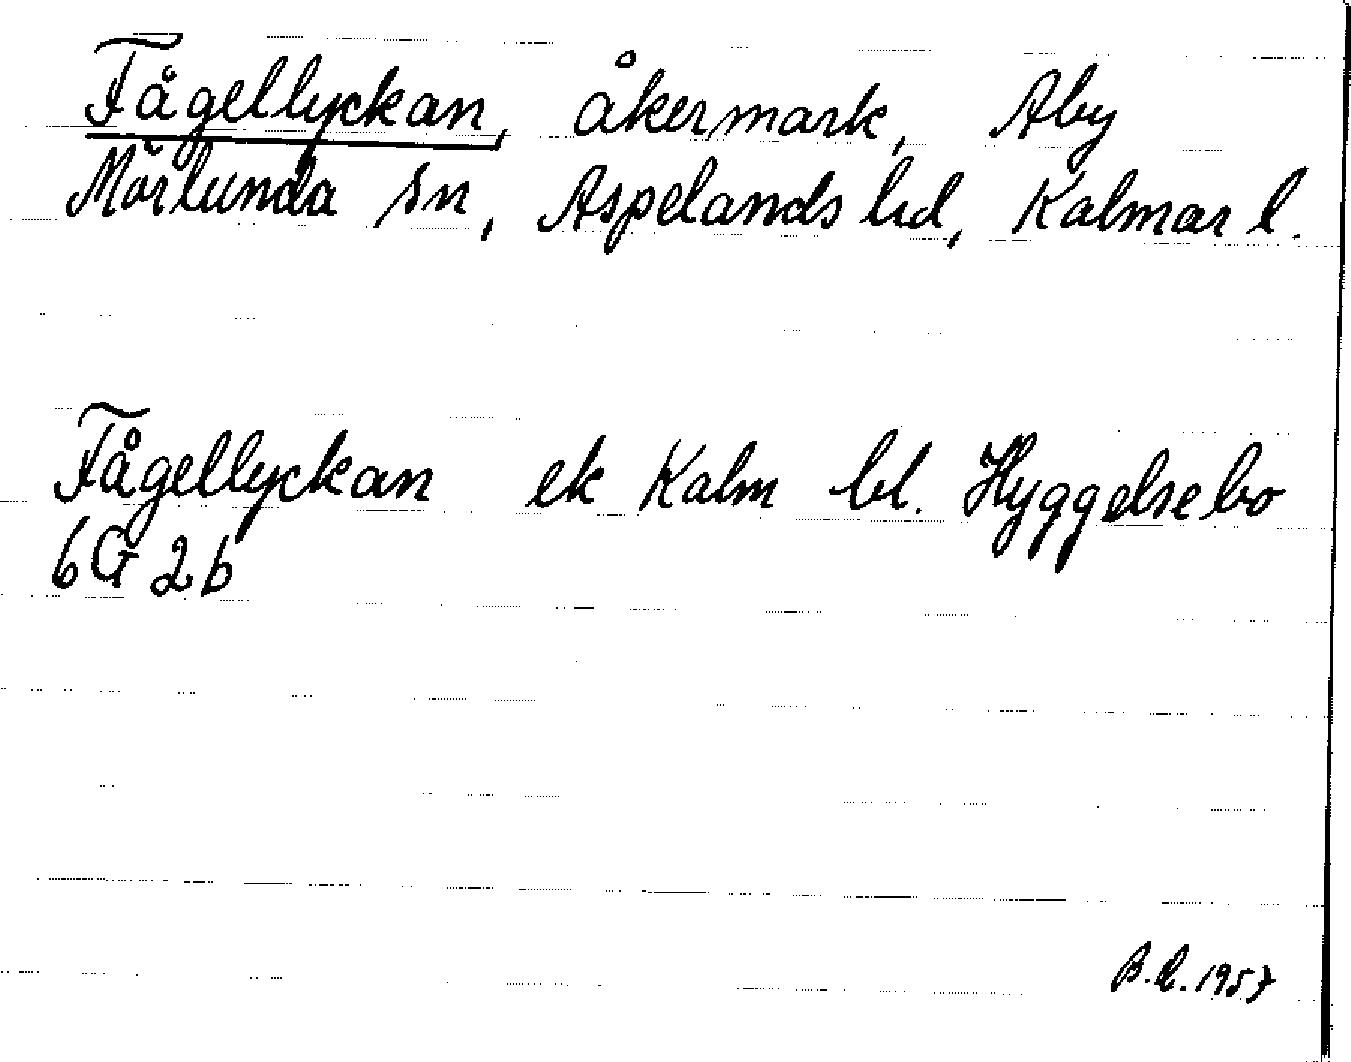 Fågellyckan, åkermark, Åby
Mörlunda sn, Aspelands hd, Kalmar l.
Fågellyckan ek Kalm bl. Hyggelsebo
6G 2b
B.L. 1957